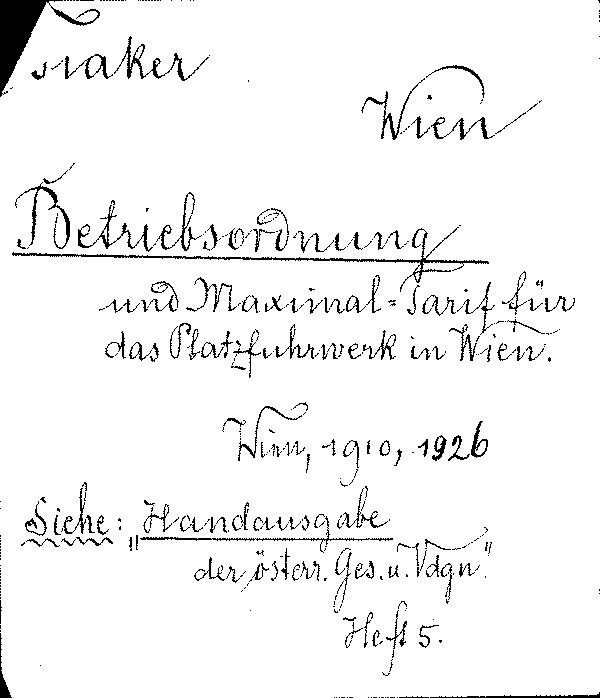 Fiaker
Wien
Betriebsordnung
und Maximal=Tarif für
das Platzfuhrwerk in Wien.
Wien, 1910, 1926
Siehe: „Handausgabe
der österr. Ges. u. Vdgn"
Heft 5.